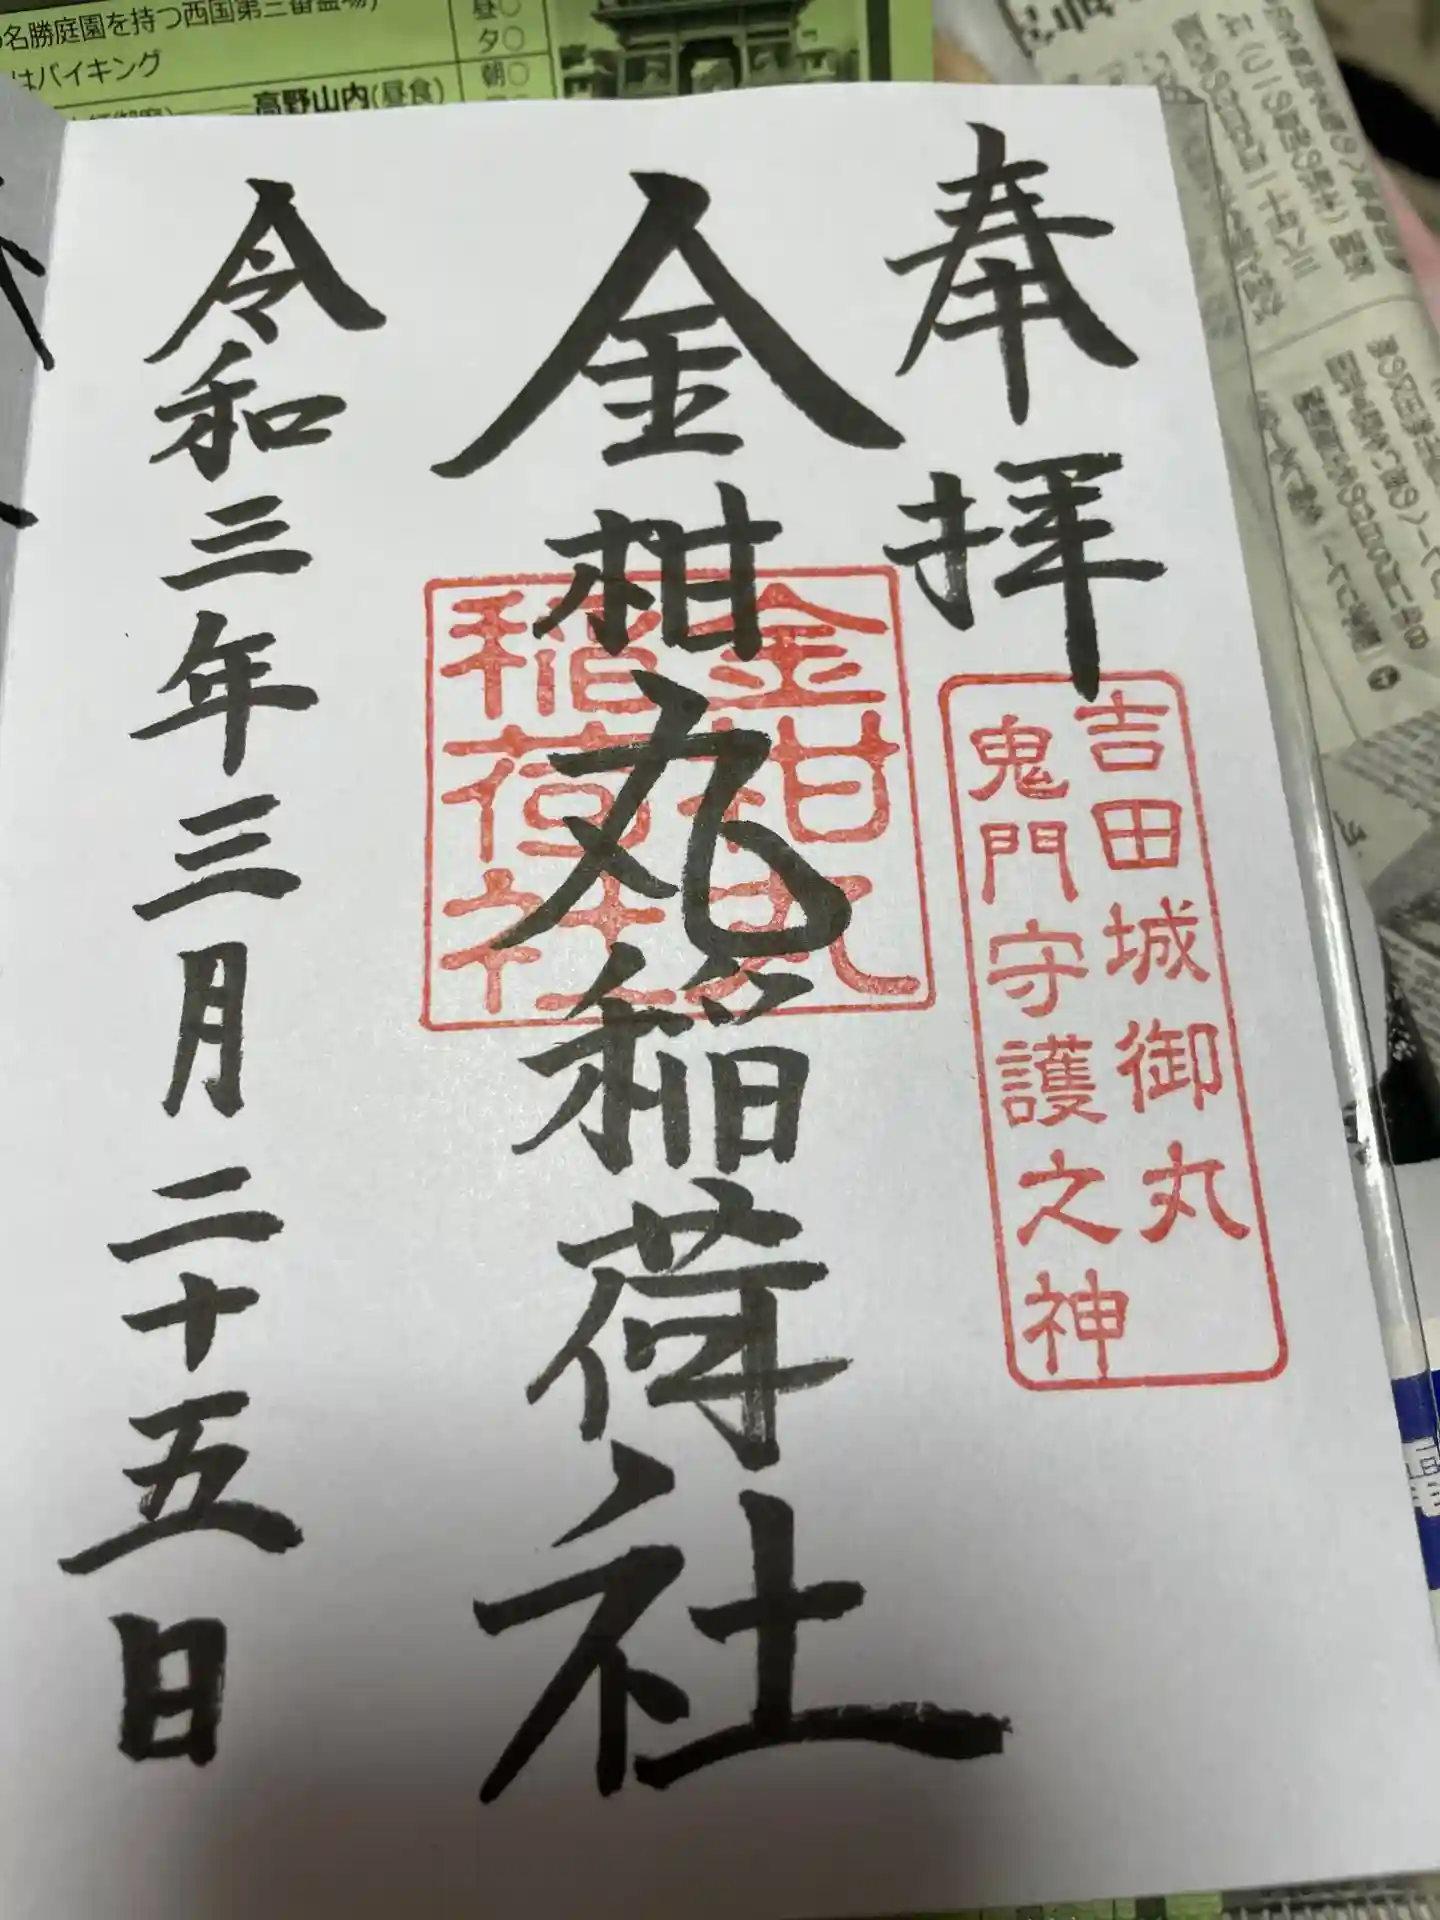 名勝庭園を持つ西国第三番霊場)
はバイキング
高野山内(昼食)
昼○
夕○
朝○
奉拝
吉田城御丸
鬼門守護之神
金柑丸稲荷社
金柑丸
稲荷社
令和三年三月二十五日